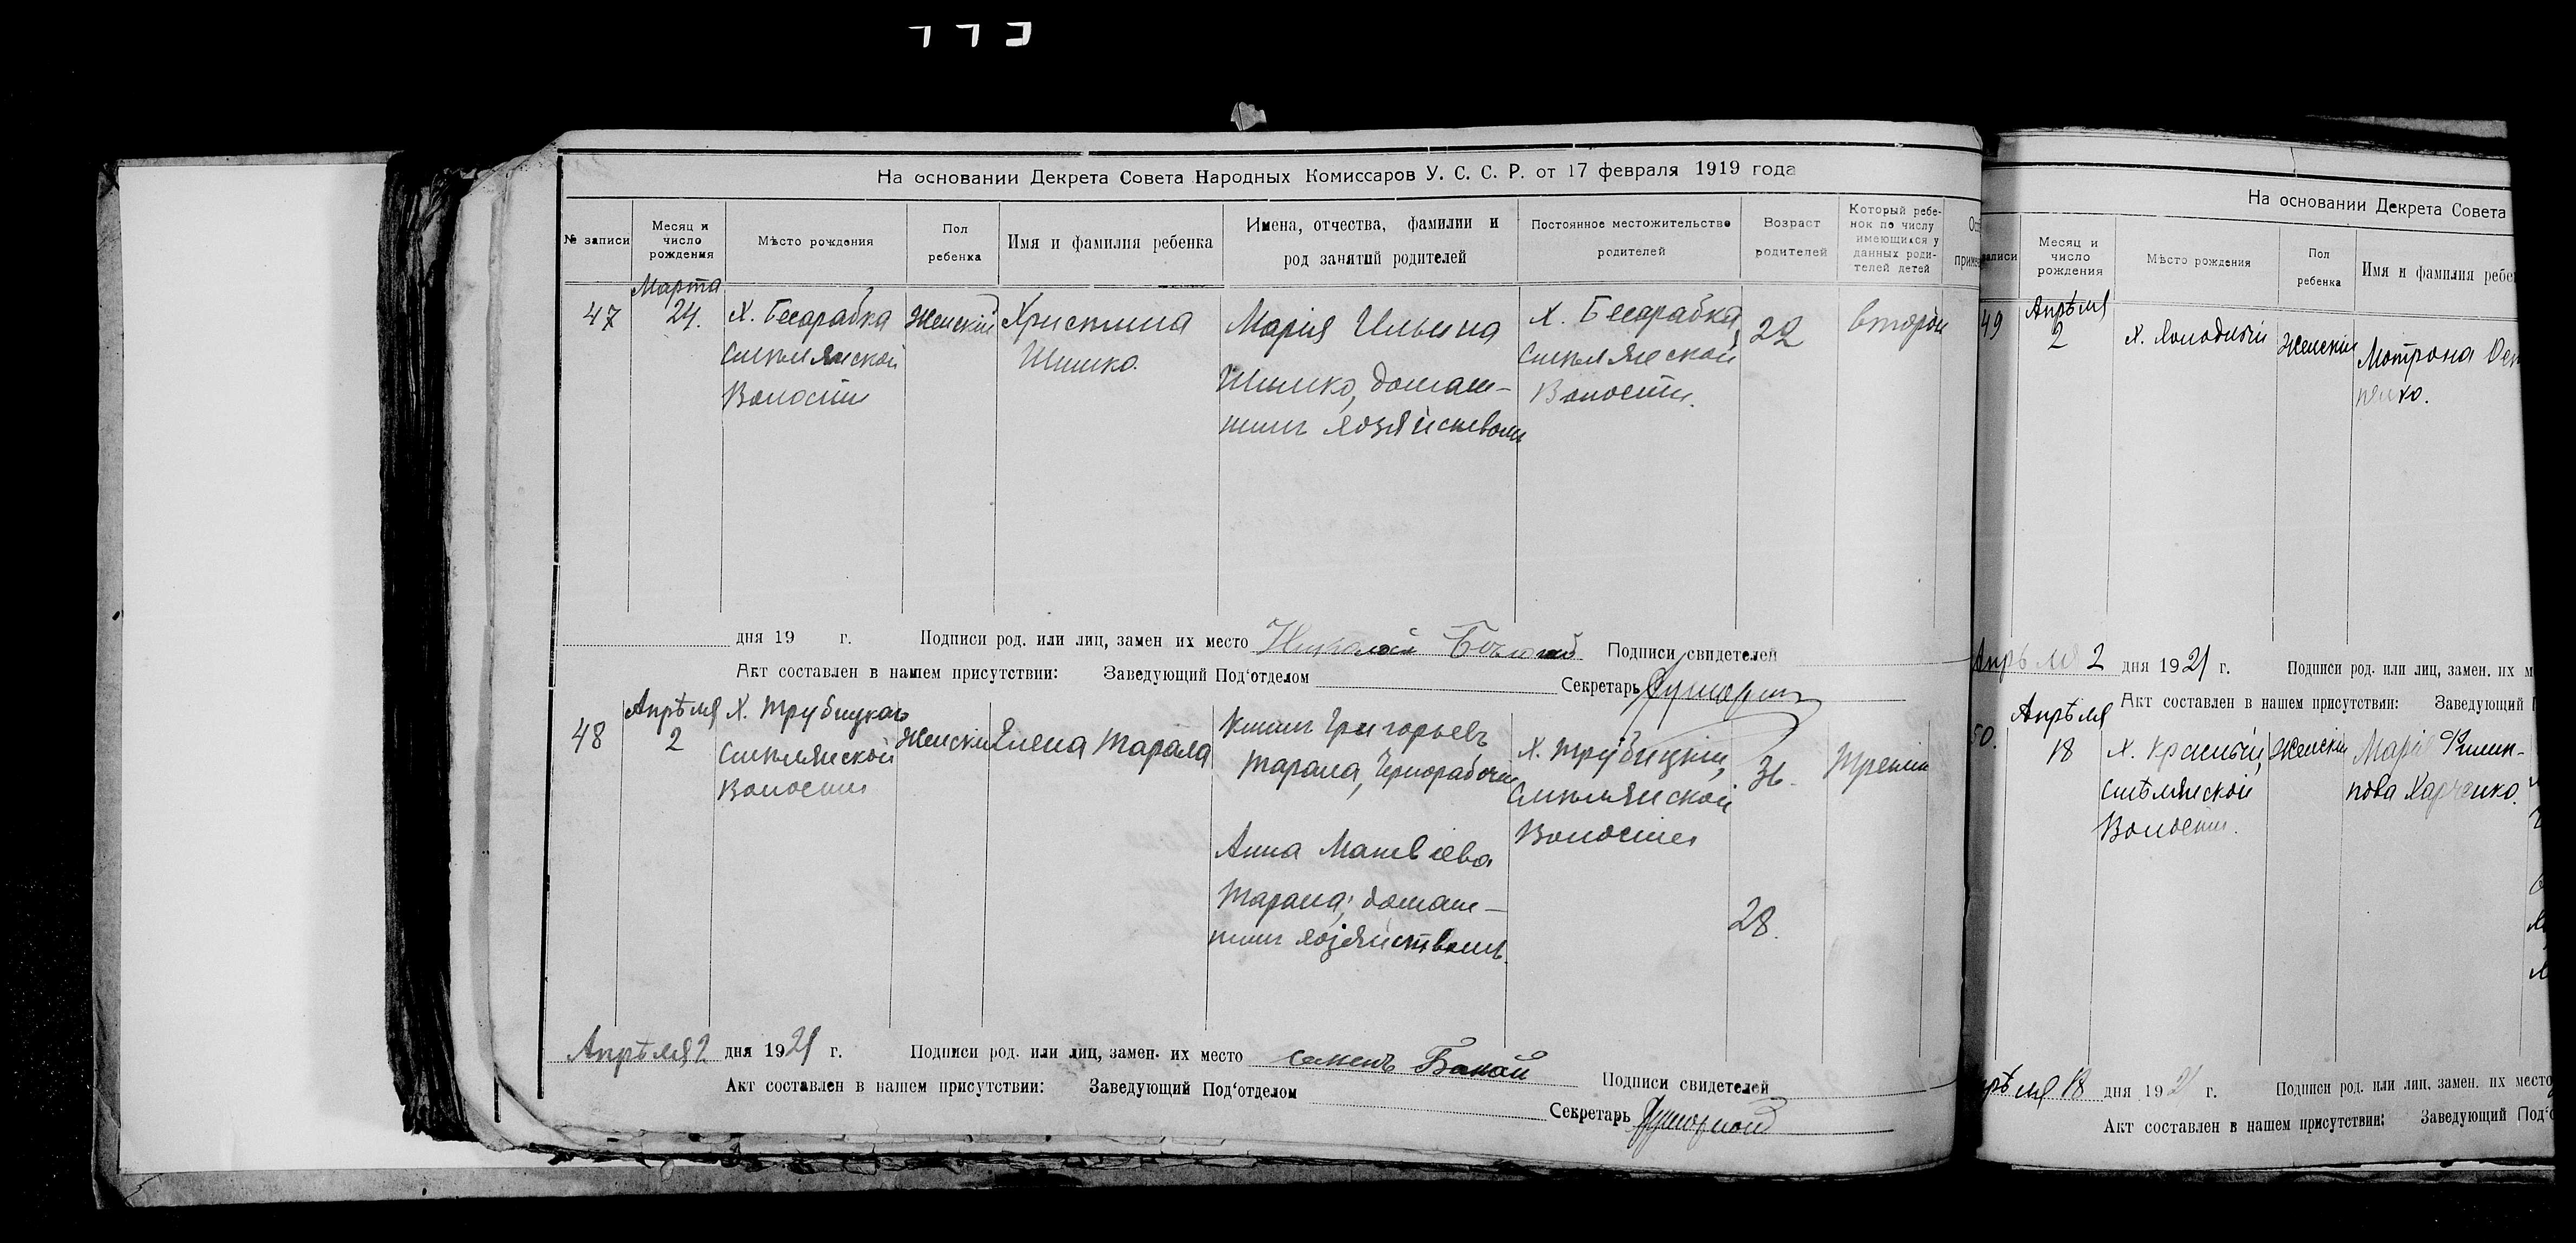 На основании Декрета Совета Народных Комиссаров У. С. С. Р. от 17 февраля 1919 года
№ записи
Месяц и число рождения
Мѣсто рождения
Пол ребенка
Имя и фамилия ребенка
Имена, отчества, фамилии и род занятий родителей
Постоянное местожительство родителей
Возраст родителей
Который ребенок по числу имеющихся у данных родителей детей
47
Марта
24.
Х. Бесарабка
Смѣлянской
Волости
Женский
Христина
Шишко.
Марія Ильина
Шишко, домаш-
нимъ хозяйствомъ
Х. Бесарабка,
Смѣлянской
Волости.
22
второй
дня 19 г.
Подписи род. или лиц, замен их место Николай
Подписи свидетелей
Акт составлен в нашем присутствии: Заведующий Под'отделом
Секретарь
48
Апрѣля
2
Х. Трубицкаго
Смѣлянской
Волости
Женский
Елена Тарана
Григорьевъ
Тарана, Чернорабочій
Анна Матвіева
Тарана, домаш-
нимъ хозяйствомъ.
Х. Трубицкій,
Смѣлянской
Волости
36.
28.
Третій
Апрѣля 2 дня 1921 г.
Подписи род. или лиц, замен. их место Семенъ
Подписи свидетелей
Акт составлен в нашем присутствии: Заведующий Под'отделом
Секретарь
На основании Декрета Совета
аписи
Месяц и число рождения
Мѣсто рождения
Пол ребенка
Имя и фамилия ребе
49
Апрѣля
2
Х. Холодный
Женский
Мотрона
Апрѣля 2 дня 1921 г.
Подписи род. или лиц, замен. их м
Акт составлен в нашем присутствии: Заведующий
50.
Апрѣля
18
Х. Красный,
Смѣлянской
Волости.
Женский
Марія Филип-
пова Харченко.
прѣля 18 дня 1921 г.
Подписи род. или лиц, замен. их место
Акт составлен в нашем присутствии: Заведующий Под'о